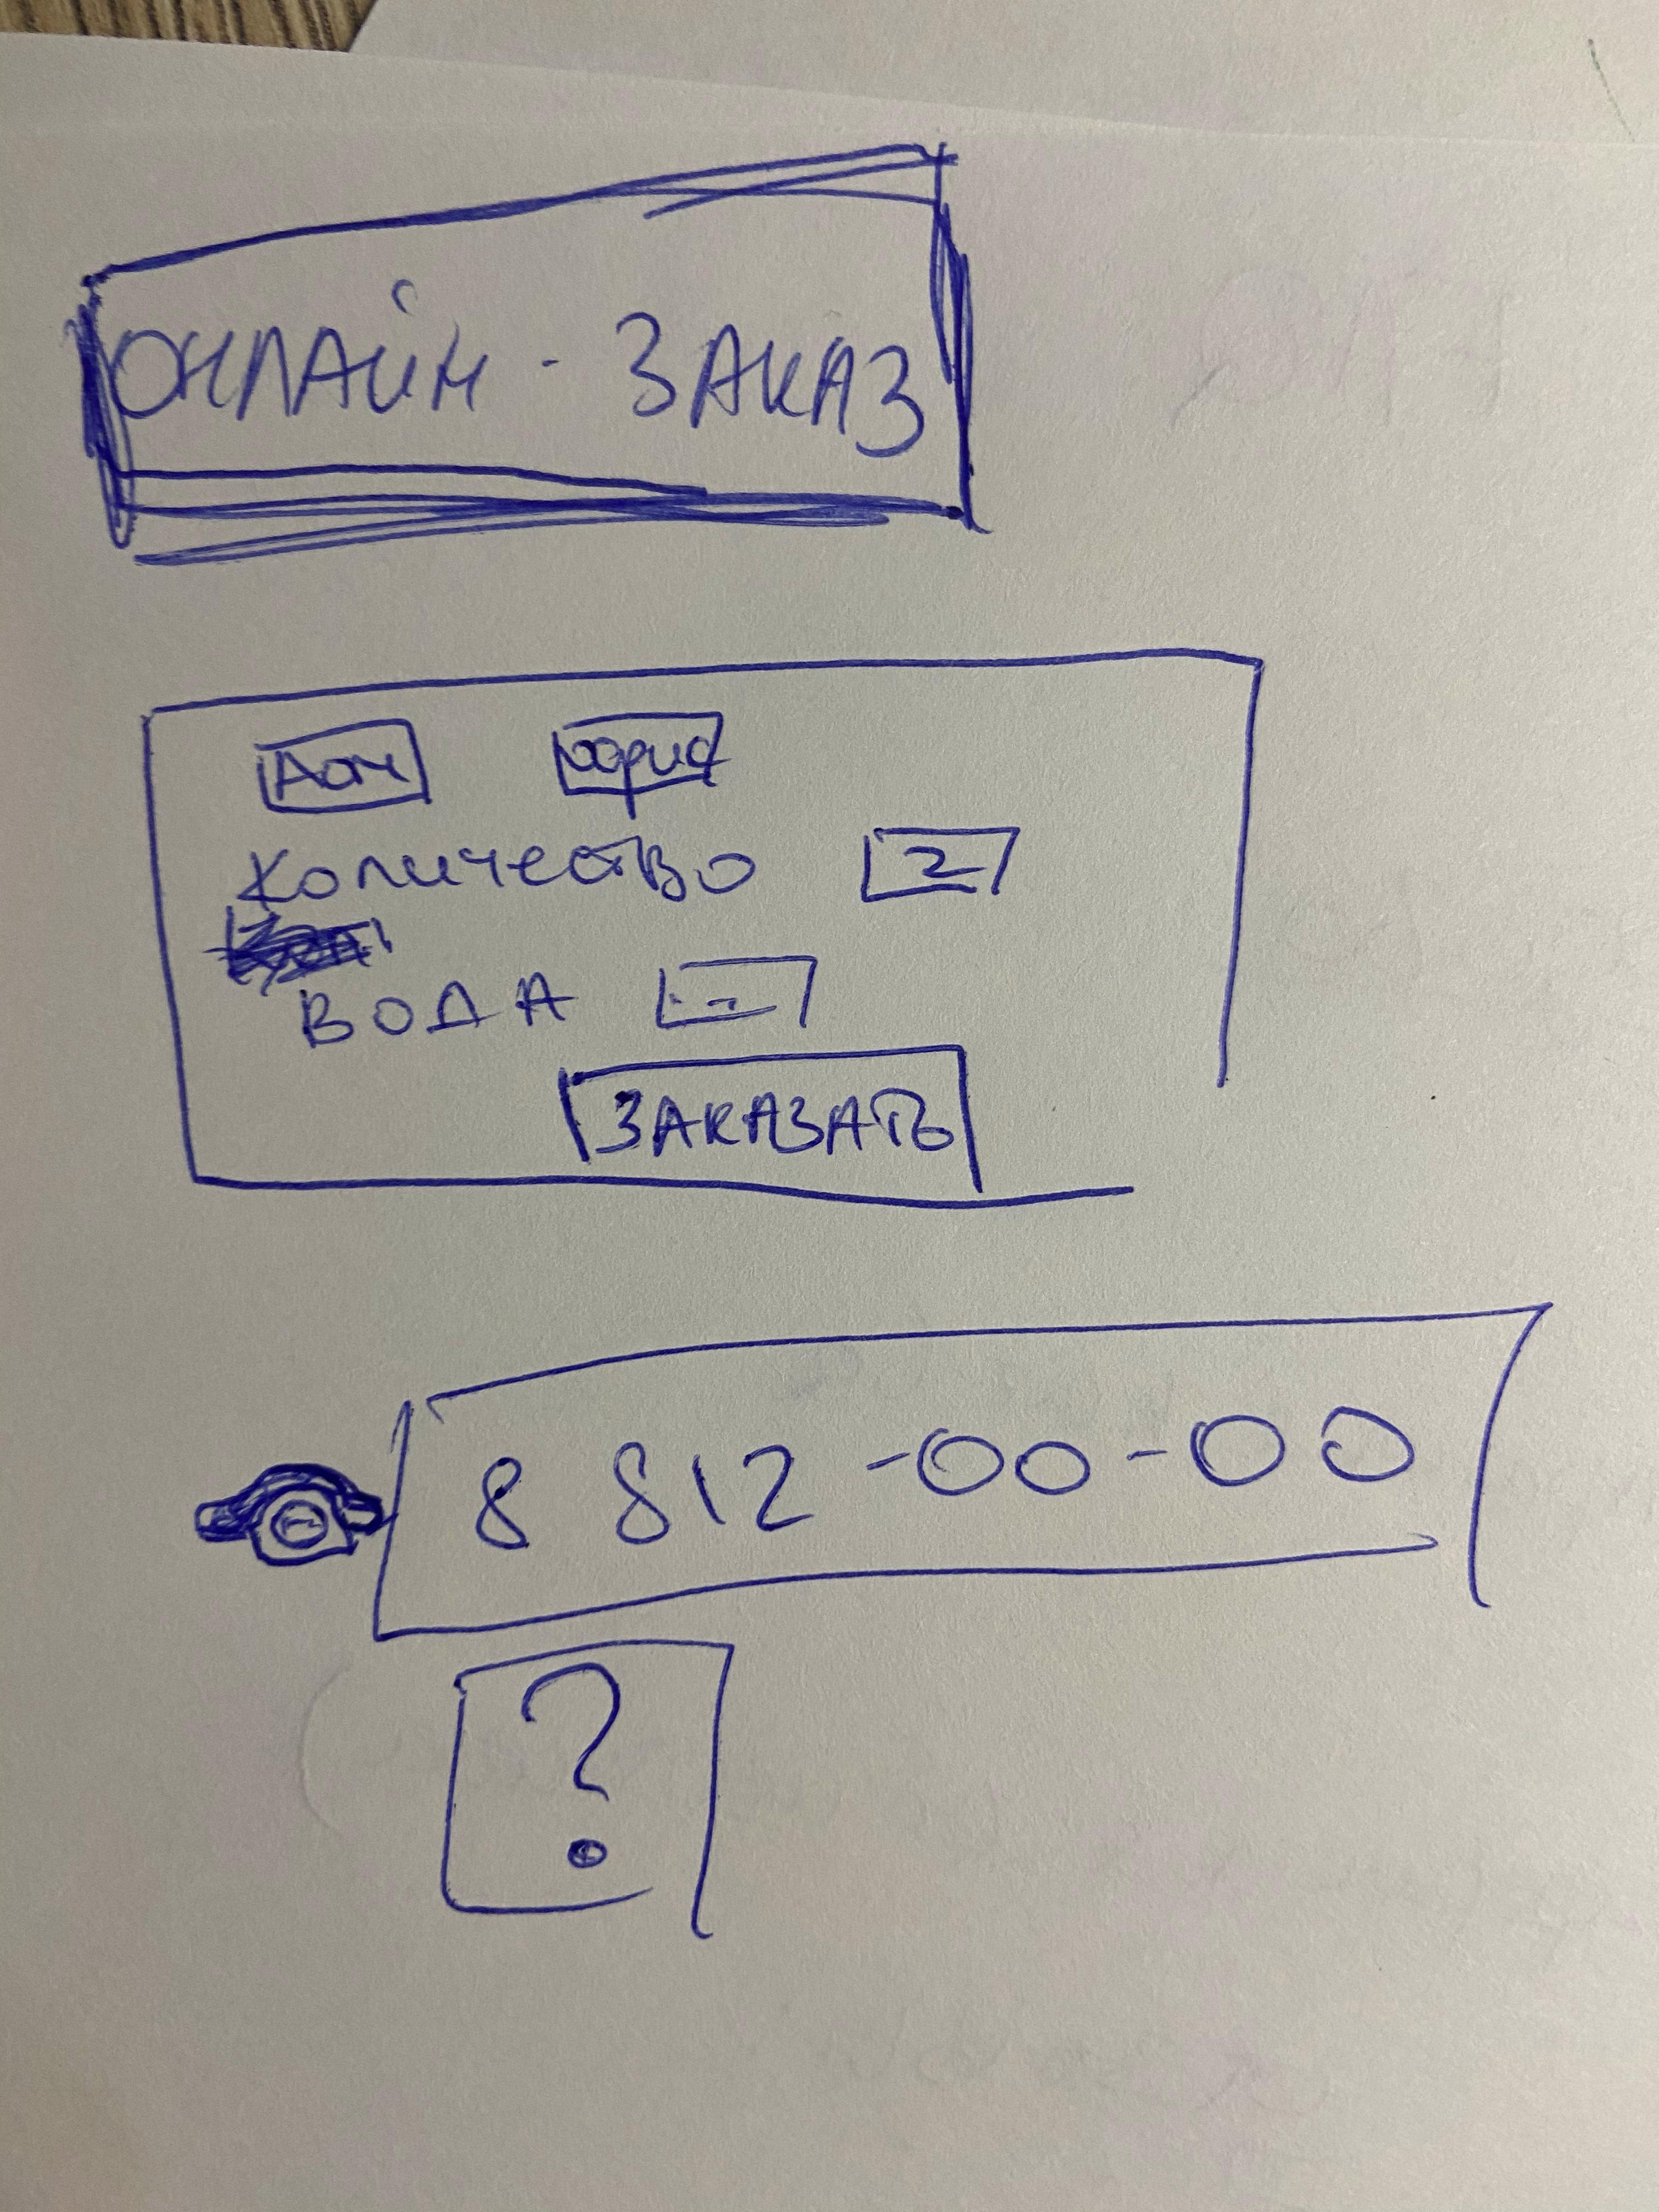 ОНЛАЙН - ЗАКАЗ
Дом офис
Количество 2
ВОДА
ЗАКАЗАТЬ
8 812 -00-00
?